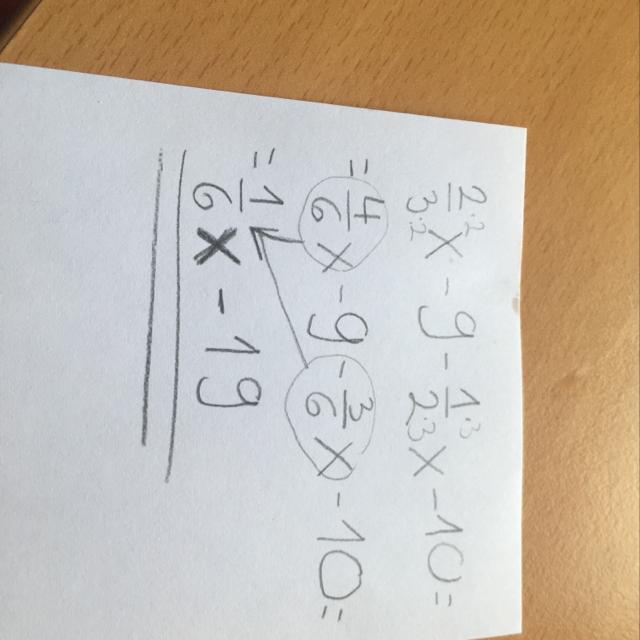 2·2/3·2 x - 9 - 1·3/2·3 x - 10 =
= 4/6 x - 9 - 3/6 x - 10 =
= 1/6 x - 19